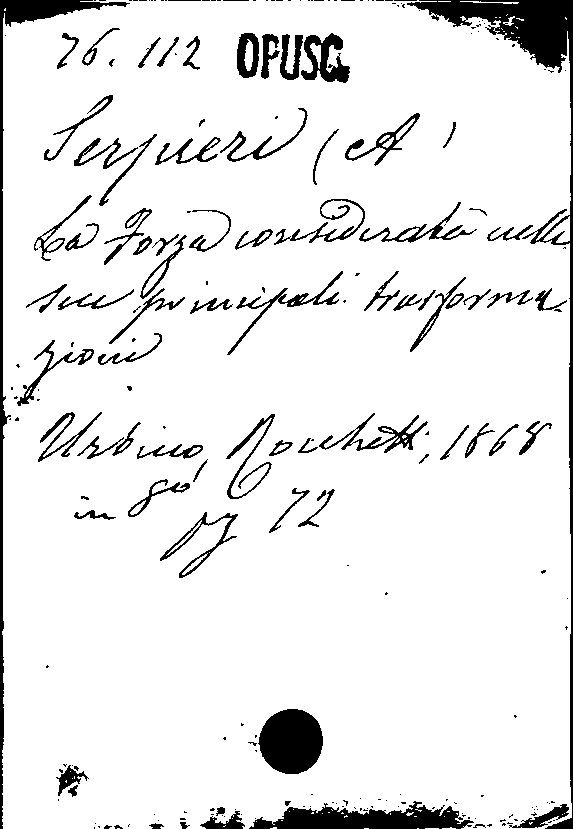 76. 112 OPUSC.
Serpieri (A)
La Forza considerata nelle
sue principali trasforma-
zioni
Urbino, Rocchetti, 1868
in 8°
pg 72